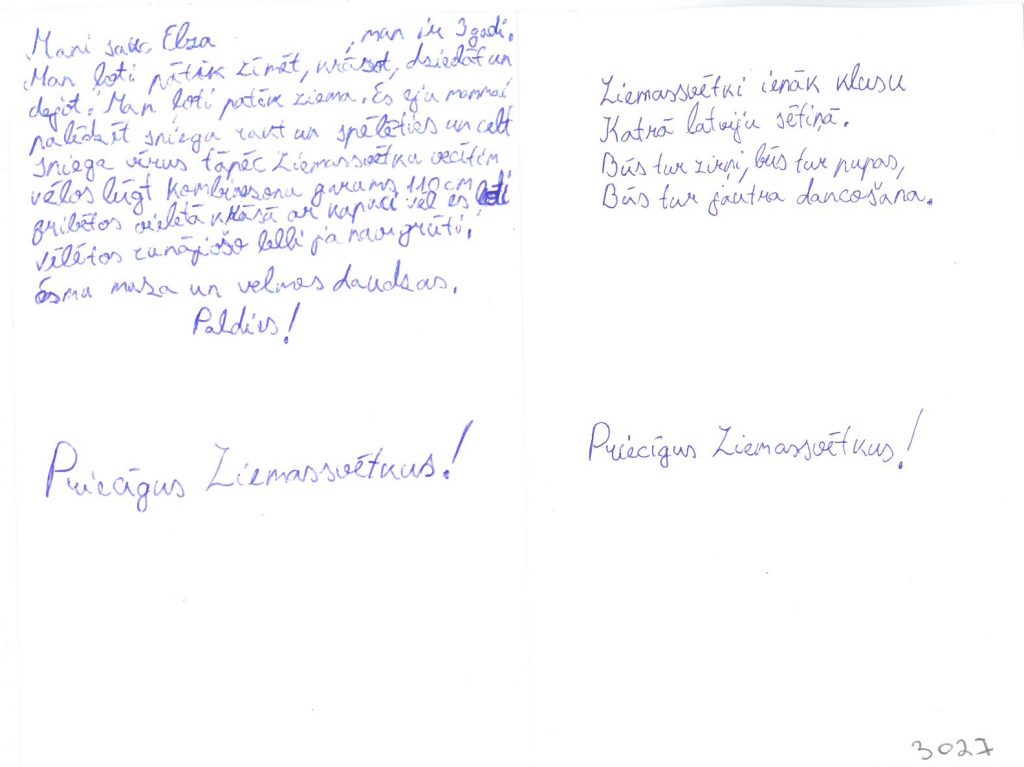 Mani sauc Elza , man ir 3 gadi.
Man ļoti pātīk zīmēt, krāsot, dziedāt un
dejot. Man ļoti patīk ziema. Es eju mammai
palēdzēt sniegu raut un spēlēties un celt
sniega vīrus tāpēc Ziemassvētku vecītim
vēlos lūgt kombinezonu garums 110cm ļoti
gribētos violetā krāsā ar kapuci vēl es
vēlētos runājošo lelli ja nav grūti.
Esmu maza un velmes daudzas.
Paldies!
Priecīgus Ziemassvētkus!
Ziemassvētki ienāk klusu
Katrā latviju sētiņā.
Būs tur zirņi, būs tur pupas,
Būs tur jautra dancošana.
Priecīgus Ziemassvētkus!
3027